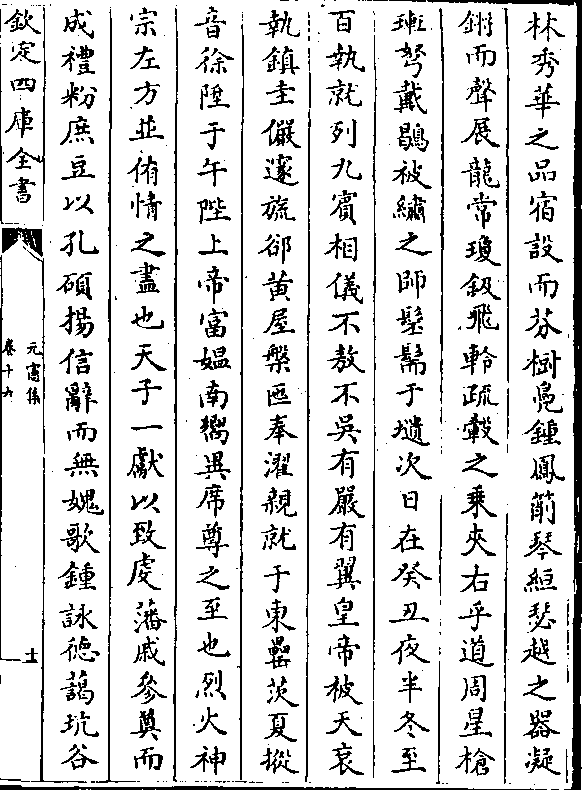 林秀華之品宿設而芬樹鳧鍾鳳簫琴絙瑟越之器凝
鏘而聲展龍常瓊鈒飛軨疏轂之乘夾右乎道周星槍
弩戴鶡被繡之師髬鬗于壝次日在癸丑夜半冬至
百執就列九賓相儀不敖不吳有嚴有翼皇帝被天衮
執鎮圭儼邃旒郤黄屋槃匜奉濯親就于東罍茨夏摐
音徐陞于午陛上帝富媪南嚮異席尊之至也烈火神
宗左方並侑情之盡也天子一獻以致虔藩戚參奠而
成禮粉庶豆以孔碩揚信辭而無媿歌鍾詠德藹坑谷
欽定四庫全書
元憲集
卷十六
十